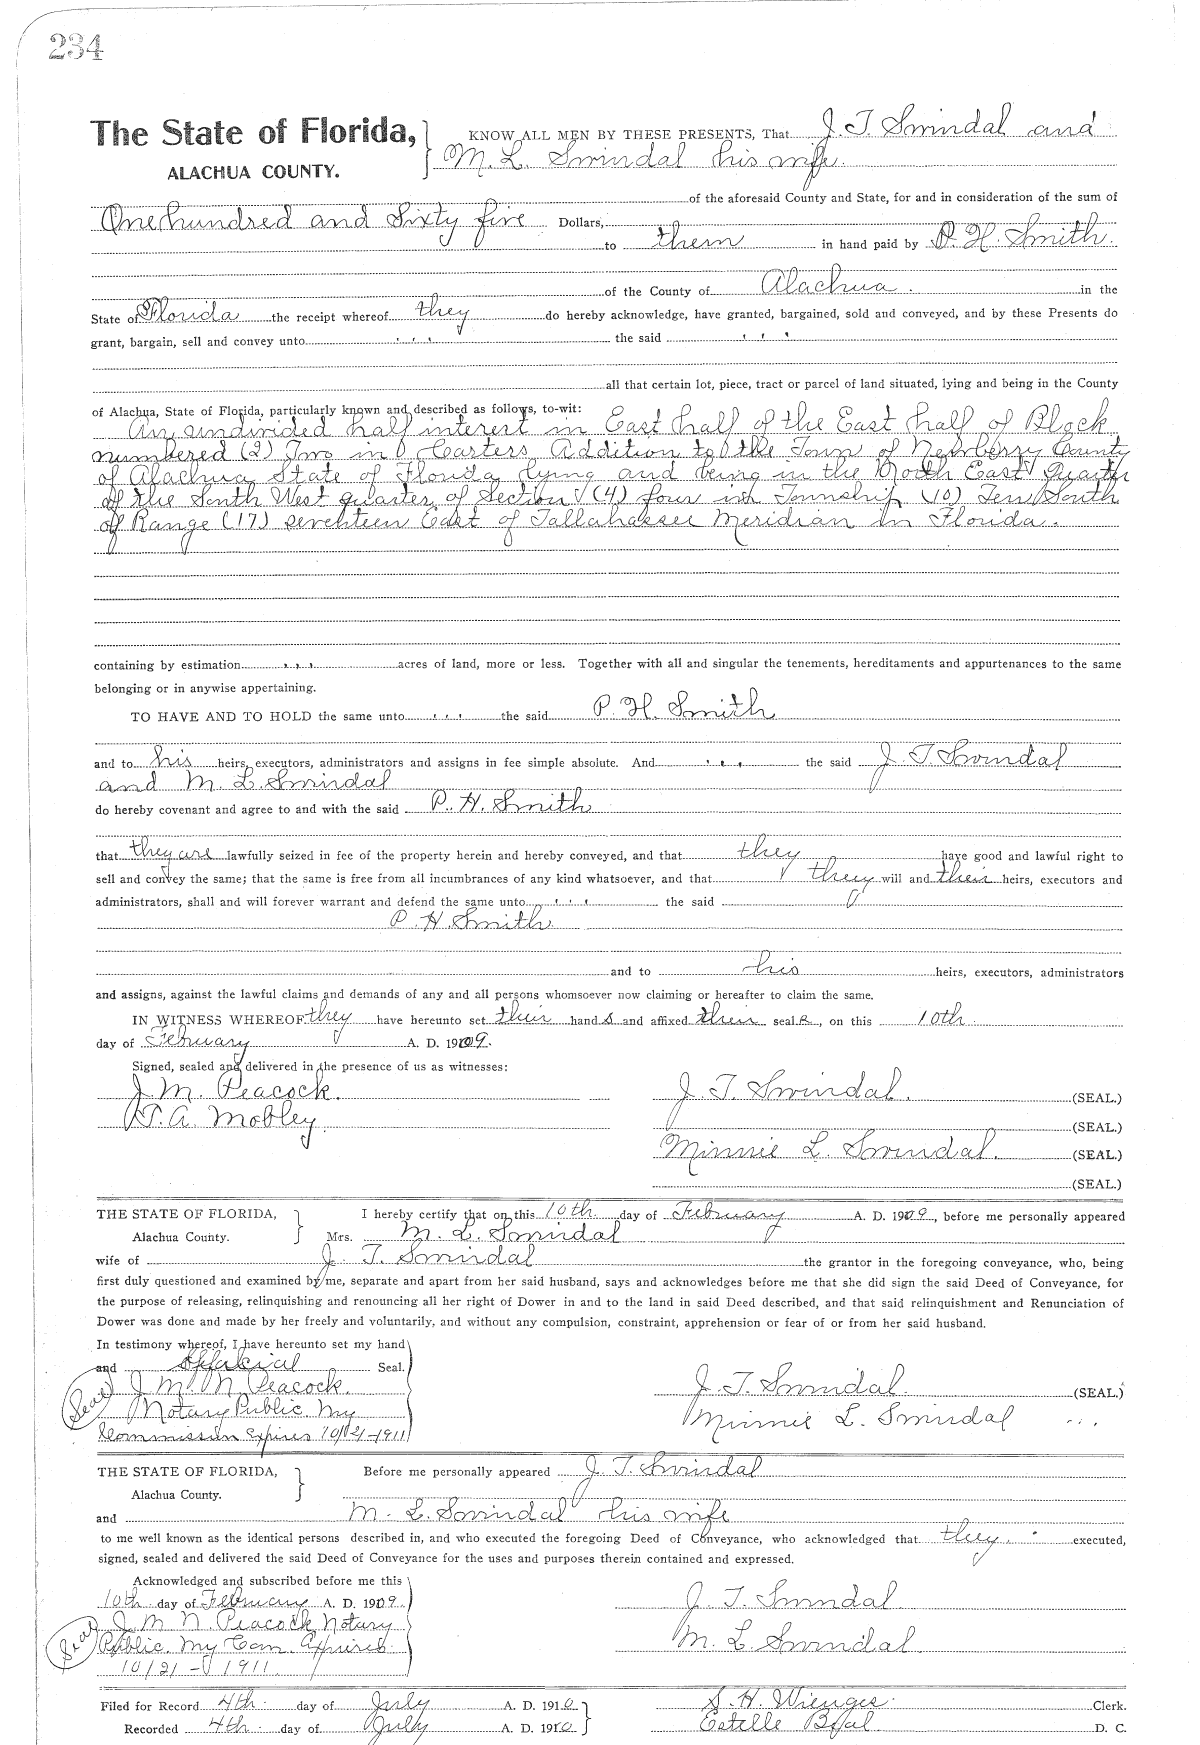 234
The State of Florida, KNOW ALL MEN BY THESE PRESENTS, That J. T. Swindal and
ALACHUA COUNTY. M. L. Swindal his wife.
of the aforesaid County and State, for and in consideration of the sum of
One hundred and Sixty five Dollars,
to them in hand paid by P. H. Smith.
of the County of Alachua. in the
State of Florida the receipt whereof they do hereby acknowledge, have granted, bargained, sold and conveyed, and by these Presents do
grant, bargain, sell and convey unto ''' the said '''
all that certain lot, piece, tract or parcel of land situated, lying and being in the County
of Alachua, State of Florida, particularly known and described as follows, to-wit:
An undivided half interest in East half of the East half of Block
numbered (2) Two in Carters Addition to the Town of Newberry County
of Alachua State of Florida lying and being in the North East Quarter
of the South West quarter of Section (4) four in Township (10) Ten South
of Range (17) seventeen East of Tallahassee Meridian in Florida.
containing by estimation ''' acres of land, more or less. Together with all and singular the tenements, hereditaments and appurtenances to the same
belonging or in anywise appertaining.
TO HAVE AND TO HOLD the same unto ''' the said P. H. Smith
and to his heirs, executors, administrators and assigns in fee simple absolute. And ''' the said J. T. Swindal
and M. L. Swindal
do hereby covenant and agree to and with the said P. H. Smith
that they are lawfully seized in fee of the property herein and hereby conveyed, and that they have good and lawful right to
sell and convey the same; that the same is free from all incumbrances of any kind whatsoever, and that they will and their heirs, executors and
administrators, shall and will forever warrant and defend the same unto ''' the said
P. H. Smith
and to his heirs, executors, administrators
and assigns, against the lawful claims and demands of any and all persons whomsoever now claiming or hereafter to claim the same.
IN WITNESS WHEREOF they have hereunto set their hands and affixed their seals, on this 10th
day of February A. D. 1909.
Signed, sealed and delivered in the presence of us as witnesses:
J. M. Peacock. J. T. Swindal. (SEAL.)
T. A. Mobley (SEAL.)
Minnie L. Swindal. (SEAL.)
(SEAL.)
THE STATE OF FLORIDA, I hereby certify that on this 10th day of February A. D. 1909, before me personally appeared
Alachua County. Mrs. M. L. Swindal
wife of J. T. Swindal the grantor in the foregoing conveyance, who, being
first duly questioned and examined by me, separate and apart from her said husband, says and acknowledges before me that she did sign the said Deed of Conveyance, for
the purpose of releasing, relinquishing and renouncing all her right of Dower in and to the land in said Deed described, and that said relinquishment and Renunciation of
Dower was done and made by her freely and voluntarily, and without any compulsion, constraint, apprehension or fear of or from her said husband.
In testimony whereof, I have hereunto set my hand
and official Seal.
(Seal) J. M. N. Peacock. J. T. Swindal. (SEAL.)
Notary Public. My Minnie L. Swindal '''
Commission Expires 10/21-1911
THE STATE OF FLORIDA, Before me personally appeared J. T. Swindal
Alachua County.
and M. L. Swindal his wife
to me well known as the identical persons described in, and who executed the foregoing Deed of Conveyance, who acknowledged that they executed,
signed, sealed and delivered the said Deed of Conveyance for the uses and purposes therein contained and expressed.
Acknowledged and subscribed before me this
10th day of February A. D. 1909. J. T. Swindal
(Seal) J. M. N. Peacock Notary
Public. My Com. Expires M. L. Swindal
10/21-1911.
Filed for Record 4th day of July A. D. 1910 S. H. Wienges Clerk.
Recorded 4th day of July A. D. 1910 Estelle D. C.